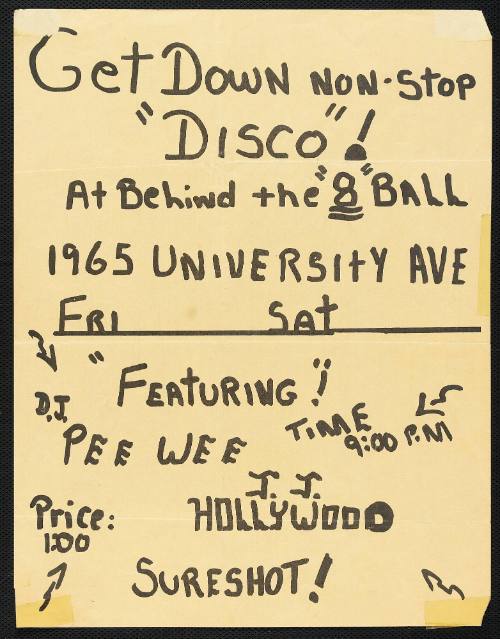 Get Down NON-Stop
"DISCO"!
At Behind the "8" BALL
1965 UNIVERSITY AVE
FRI SAT
"FEATURING"!
D.J. PEE WEE
TIME 9:00 P.M
J.J. HOLLYWOOD
Price: 1.00
SURESHOT!